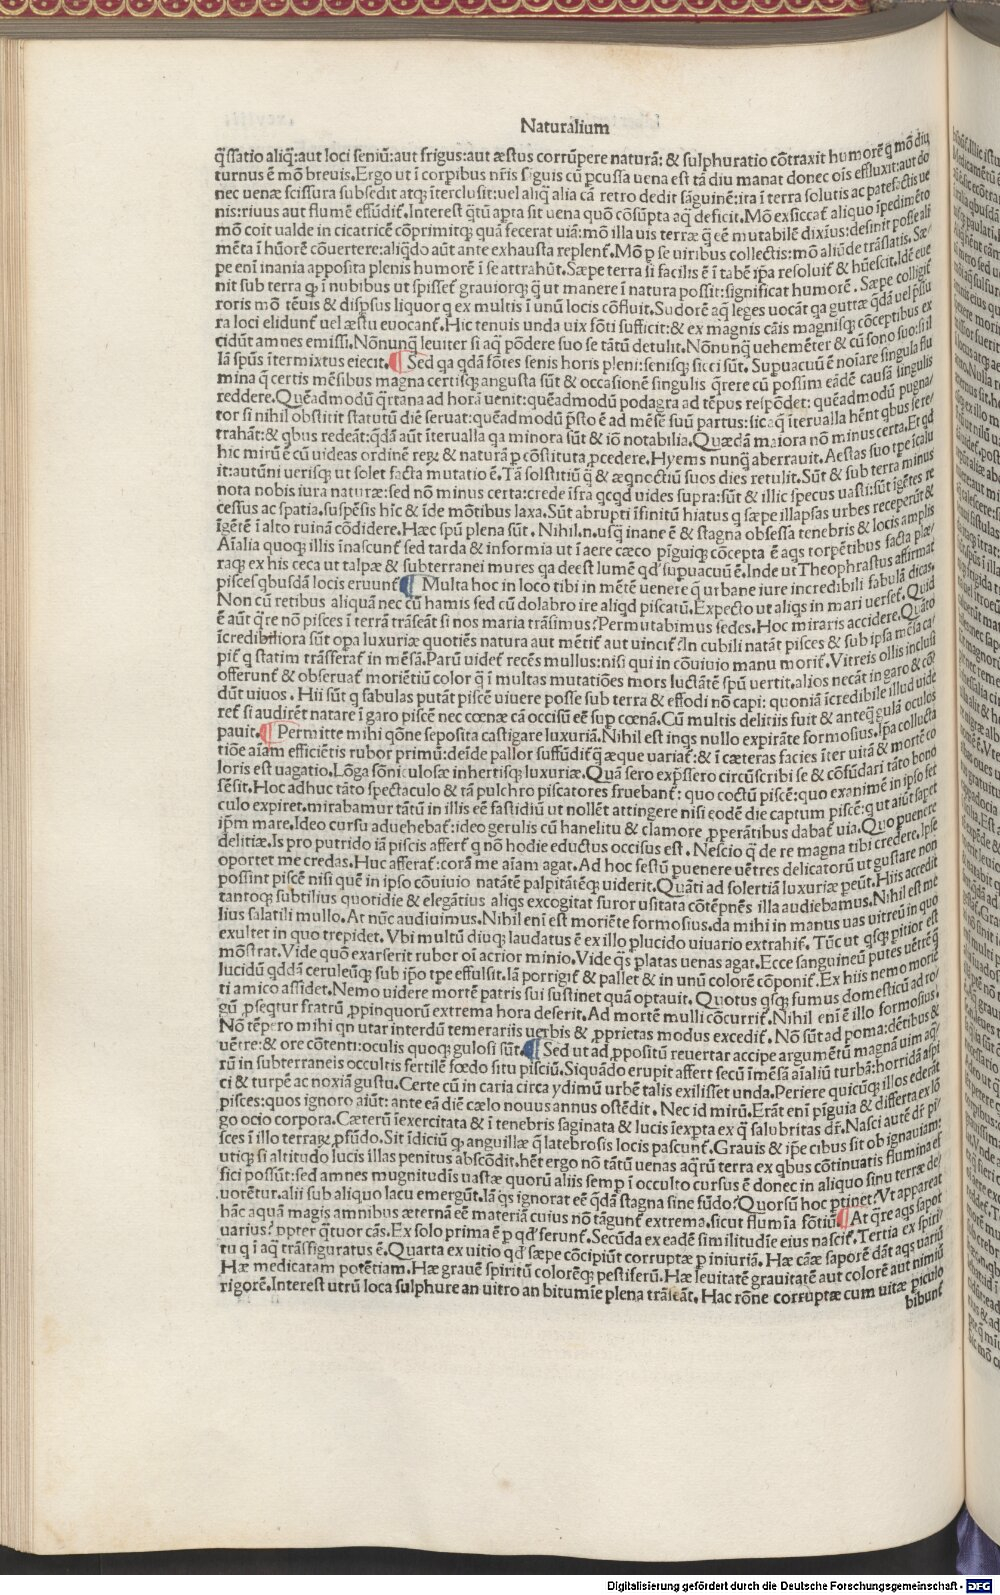 Naturalium
q̃ſſatio aliq̃:aut loci ſeniũ:aut frigus:aut æſtus corrũpere naturã: & ſulphuratio cõtraxit humorẽ q mõ diu
turnus ẽ mõ breuis.Ergo ut ĩ corpibus nr̃is ſiguis cũ ꝑcuſſa uena eſt tã diu manat donec oĩs effluxit:aut do
nec uenæ ſciſſura ſubſedit atqꝫ ĩterclusit:uel aliq̃ alia cã retro dedit ſãguinẽ:ita ĩ terra ſolutis ac patefactis ue
nis:riuus aut flumẽ effũdit̃.Intereſt q̃tũ apta ſit uena quõ cõſũpta aq̃ deficit.Mõ exſiccat̃ aliquo ĩpedimẽto
mõ coit ualde in cicatricẽ cõprimitqꝫ quã fecerat uiã:mõ illa uis terræ q̃ eẽ mutabilẽ dixiũs:deſinit poſſe ali
mẽta ĩ hũorẽ cõuertere:aliqdo aũt ante exhauſta replent̃.Mõ ꝑ ſe uiribus collectis:mõ aliũde trãſlatis.Sæ
pe enĩ inania appoſita plenis humorẽ ĩ ſe attrahũt.Sæpe terra ſi facilis ẽ ĩ tabẽ ip̃a reſoluit̃ & hũeſcit.Idẽ eue
nit ſub terra qꝫ ĩ nubibus ut ſpiſſet̃ grauiorqꝫ q̃ ut manere ĩ natura poſſit:ſignificat humorẽ. Sæpe colligit̃
roris mõ tẽuis & diſpſus liquor q ex multis ĩ unũ locis cõfluit.Sudorẽ aq̃ leges uocãt qa guttæ q̃dã uel p̃ſſu
ra loci elidunt̃ uel æſtu euocant̃.Hic tenuis unda uix fõti ſufficit:& ex magnis cãis magniſqꝫ cõceptibus ex
cidũt amnes emiſſi.Nõnunq̃ leuiter ſi aq̃ põdere ſuo ſe tãtũ detulit.Nõnunq̃ uehemẽter & cũ ſono ſuo:ſi il
lã ſpũs ĩtermixtus eiecit. Sed qa qdã fõtes ſenis horis pleni:ſeniſqꝫ ſicci ſũt. Supuacuũ ẽ noĩare ſingula flu
mina q̃ certis mẽſibus magna certiſqꝫ anguſta ſũt & occaſionẽ ſingulis q̃rere cũ poſſim eãdẽ cauſã ſingulis
reddere.Quẽadmodũ q̃rtana ad horã uenit:quẽadmodũ podagra ad tẽpus reſpõdet: quẽadmodũ purga/
tor ſi nihil obſtitit ſtatutũ diẽ ſeruat:quẽadmodũ p̃ſto ẽ ad mẽſẽ ſuũ partus:ſic aq̃ ĩterualla hẽnt qbus ſe re/
trahãt:& qbus redeãt:qdã aũt ĩterualla qa minora ſũt & iõ notabilia.Quædã maiora nõ minus certa.Et qd
hic mirũ ẽ cũ uideas ordinẽ reꝝ & naturã ꝑ cõſtituta ꝓcedere.Hyems nunq̃ aberrauit.Aeſtas ſuo tꝑe ĩcalu
it:autũni ueriſqꝫ ut ſolet facta mutatio ẽ.Tã ſolſtitiũ q̃ & æqnoctiũ ſuos dies retulit. Sũt & ſub terra minus
nota nobis iura naturæ:ſed nõ minus certa:crede ĩfra qcqd uides ſupra:ſũt & illic ſpecus uaſti:ſũt ĩgẽtes re
ceſſus ac ſpatia.ſuſpẽſis hĩc & ĩde mõtibus laxa.Sũt abrupti ĩfinitũ hiatus q ſæpe illapſas urbes receperũt &
ĩgẽtẽ ĩ alto ruinã cõdidere.Hæc ſpũ plena ſũt. Nihil.n.uſq̃ inane ẽ & ſtagna obſeſſa tenebris & locis amplis
Aĩalia quoqꝫ illis ĩnaſcunt̃ ſed tarda & informia ut ĩ aere cæco pĩguiqꝫ cõcepta ẽ aqs torpẽtibus facta plæ/
raqꝫ ex his ceca ut talpæ & ſubterranei mures qa deeſt lumẽ qd' ſupuacuũ ẽ.Inde ut Theophraſtus affirmat
piſces qbuſdã locis eruunt̃ Multa hoc in loco tibi in mẽtẽ uenere q̃ urbane iure incredibili fabulã dicas.
Non cũ retibus aliquã nec cũ hamis ſed cũ dolabro ire aliqd piſcatũ.Expecto ut aliqs in mari uerſet̃.Quid
ẽ aũt q̃re nõ piſces ĩ terrã trãſeãt ſi nos maria trãſimus?Permutabimus ſedes.Hoc miraris accidere.Quãto
ĩcredibiliora ſũt opa luxuriæ quotiẽs natura aut mẽtit̃ aut uincit?In cubili natãt piſces & ſub ipſa mẽſa ca/
pit̃ q ſtatim trãſferat̃ in mẽſã.Parũ uidet̃ recẽs mullus:niſi qui in cõuiuio manu morit̃.Vitreis ollis incluſi
offerunt̃ & obſeruat̃ moriẽtiũ color q̃ ĩ multas mutatiões mors luctãtẽ ſpũ uertit.alios necãt in garo & cõ?
dũt uiuos. Hii ſũt q fabulas putãt piſcẽ uiuere poſſe ſub terra & effodi nõ capi: quoniã ĩcredibile illud uide
ret̃ ſi audirẽt natare ĩ garo piſcẽ nec cœnæ cã occiſũ eẽ ſup cœnã.Cũ multis deliriis fuit & anteq̃ gulã oculos
pauit. Permitte mihi qõne ſepoſita caſtigare luxuriã.Nihil eſt inqs nullo expirãte formoſius.Ip̃a collucta
tiõe aĩam efficiẽtis rubor primũ:deĩde pallor ſuffũdit̃ q̃ æque uariat̃:& ĩ cæteras facies ĩter uitã & mortẽ co
loris eſt uagatio.Lõga ſõniculoſæ inhertiſqꝫ luxuriæ.Quã ſero exp̃ſſero circũſcribi ſe & cõfũdari tãto bono
ſẽſit.Hoc adhuc tãto ſpectaculo & tã pulchro piſcatores fruebant̃: quo coctũ piſcẽ:quo exanimẽ in ipſo fer
culo expiret.mirabamur tãtũ in illis eẽ faſtidiũ ut nollẽt attingere niſi eodẽ die captum piſcẽ:q ut aiũt ſapet
ip̃m mare.Ideo curſu aduehebat̃:ideo gerulis cũ hanelitu & clamore ꝓperãtibus dabat̃ uia.Quo puenere
delitiæ.Is pro putrido iã piſcis affert̃ q nõ hodie eductus occiſus eſt. Neſcio q̃ de re magna tibi credere.Ipſe
oportet me credas.Huc afferat̃:corã me aĩam agat.Ad hoc feſtũ puenere uẽtres delicatorũ ut guſtare non
poſſint piſcẽ niſi quẽ in ipſo cõuiuio natãtẽ palpitãtẽqꝫ uiderit.Quãti ad ſolertiã luxuriæ peũt.Hiis accedit
tantoqꝫ ſubtilius quotidie & elegãtius aliqs excogitat furor uſitata cõtẽpnẽs illa audiebamus.Nihil eſt me
lius ſalatili mullo.At nũc audiuimus.Nihil enĩ eſt moriẽte formoſius.da mihi in manus uas uitreũ in quo
exultet in quo trepidet.Vbi multũ diuqꝫ laudatus ẽ ex illo ꝑlucido uiuario extrahit̃. Tũc ut qſqꝫ pitior eſt
mõſtrat.Vide quõ exarſerit rubor oĩ acrior minio.Vide q̃s ꝑ latas uenas agat.Ecce ſanguineũ putes uẽtrẽ q̃
lucidũ qddã ceruleũqꝫ ſub ip̃o tꝑe effulſit.Iã porrigit̃ & pallet & in unũ colorẽ cõponit̃.Ex hiis nemo moriẽ
ti amico aſſidet.Nemo uidere mortẽ patris ſui ſuſtinet quã optauit. Quotus qſqꝫ fumus domeſticũ ad ro/
gũ ꝓſeqtur fratrũ ꝓpinquorũ extrema hora deſerit.Ad mortẽ mulli cõcurrit̃.Nihil enĩ ẽ illo formoſius.
Nõ tẽpero mihi qn utar interdũ temerariis uerbis & ꝓprietas modus excedit̃. Nõ ſũt ad poma:dẽtibus &
uẽtre:& ore cõtenti:oculis quoqꝫ guloſi ſũt. Sed ut ad ꝓpoſitũ reuertar accipe argumẽtũ magnã uim aq/
rũ in ſubterraneis occultis fertilẽ fœdo ſitu piſciũ.Siquãdo erupit affert ſecũ ĩmẽſã aĩaliũ turbã:horridã aſpi
ci & turpẽ ac noxiã guſtu.Certe cũ in caria circa ydimũ urbẽ talis exiliſſet unda.Periere quicũqꝫ illos ederãt
piſces:quos ignoro aiũt: ante eã diẽ cælo nouus annus oſtẽdit. Nec id mirũ.Erãt enĩ pĩguia & differta ex lõ
go ocio corpora.Cæterũ ĩexercitata & ĩ tenebris ſaginata & lucis ĩexpta ex q̃ ſalubritas dr̃.Naſci autẽ dr̃ pi/
ſces ĩ illo terraꝝ ꝓfũdo.Sit ĩdiciũ qꝫ anguillæ q̃ latebroſis locis paſcunt̃.Grauis & ip̃e cibus ſit ob ignauiam:
utiqꝫ ſi altitudo lucis illas penitus abſcõdit.hẽt ergo nõ tãtũ uenas aq̃rũ terra ex qbus cõtinuatis flumina ef
fici poſſũt:ſed amnes mugnitudĩs uaſtæ quorũ aliis ſemp ĩ occulto curſus ẽ donec in aliquo ſinu terræ de/
uorẽtur.alii ſub aliquo lacu emergũt.Iã qs ignorat eẽ q̃dã ſtagna ſine fũdo?Quorſũ hoc ptinet?Vt appareat
hãc aquã magis amnibus æternã eẽ materiã cuius nõ tãgunt̃ extrema.ſicut flumĩa fõtiũ At q̃re aqs ſapor
uarius?ꝓpter q̃tuor cãs.Ex ſolo prima ẽ ꝑ qd' ferunt̃.Secũda ex eadẽ ſimilitudĩe eius naſcit̃.Tertia ex ſpiri/
tu q ĩ aq̃ trãſfiguratus ẽ.Quarta ex uitio qd' ſæpe cõcipiũt corruptæ ꝑ iniuriã. Hæ cãæ ſaporẽ dãt aqs uariũ
Hæ medicatam potẽtiam.Hæ grauẽ ſpiritũ colorẽqꝫ peſtiferũ.Hæ leuitatẽ grauitatẽ aut colorẽ aut nimiũ
rigorẽ.Intereſt utrũ loca ſulphure an uitro an bitumĩe plena trãſeãt. Hac rõne corruptæ cum uitæ piculo
bibunt̃
Digitalisierung gefördert durch die Deutsche Forschungsgemeinschaft - DFG